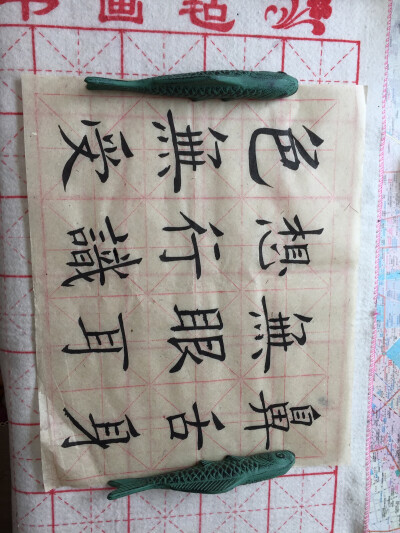 画毡
色無受
想行識
無眼耳
鼻舌身